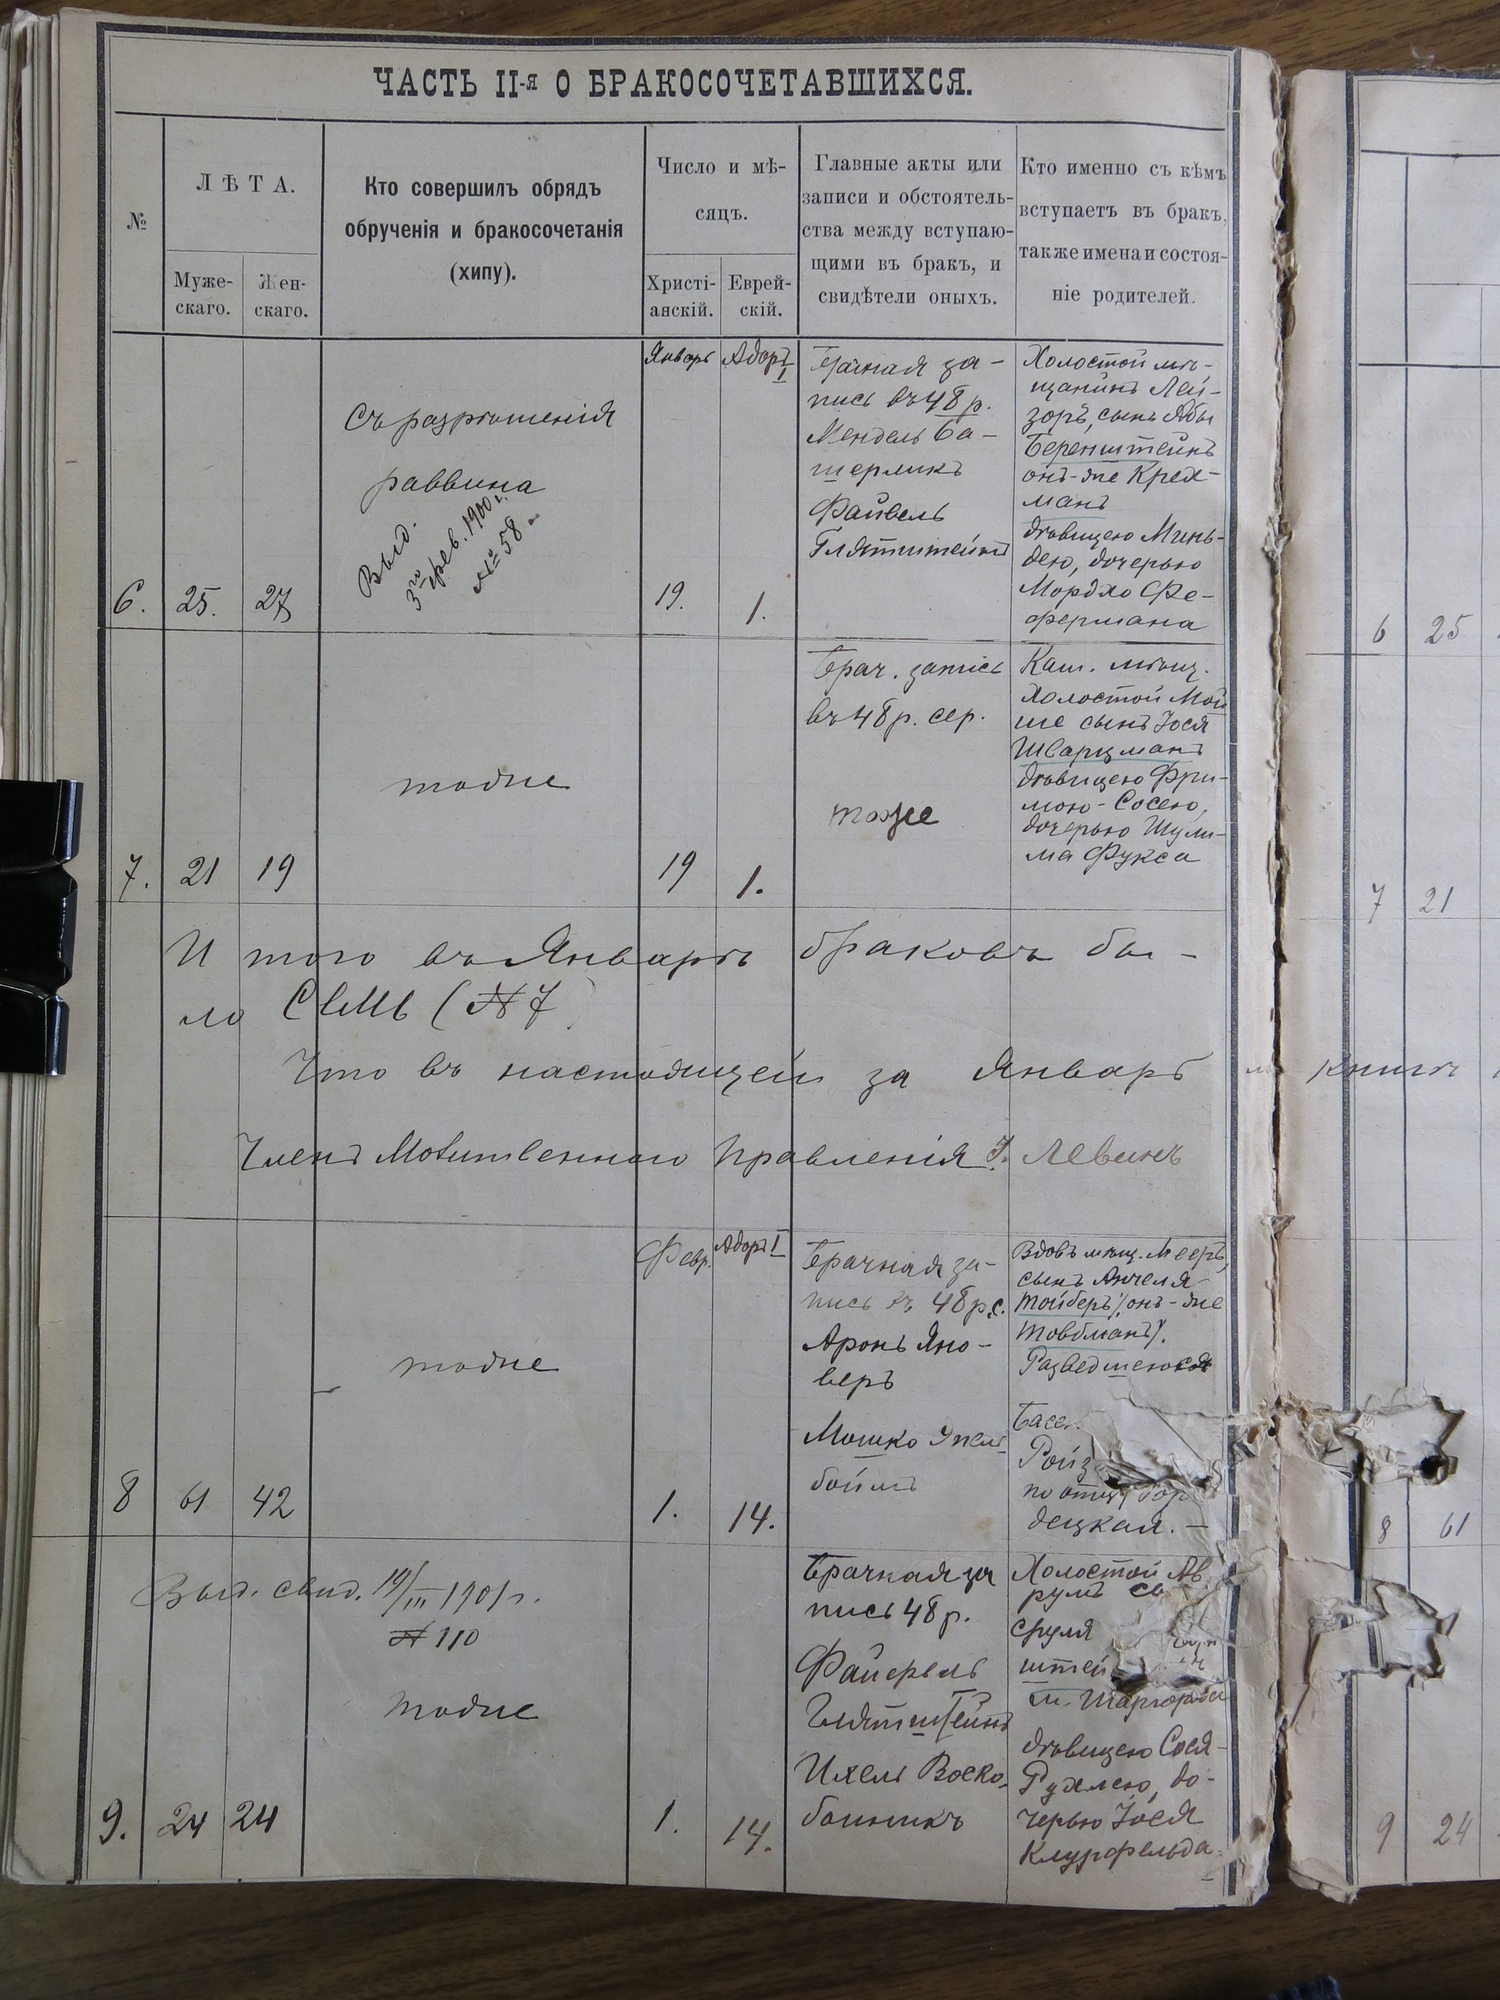 ЧАСТЬ II-я О БРАКОСОЧЕТАВШИХСЯ.
№
ЛѢТА.
Муже-
скаго.
Жен-
скаго.
Кто совершилъ обрядъ
обрученія и бракосочетанія
(хипу).
Число и мѣ-
сяцъ.
Христі-
анскій.
Еврей-
скій.
Главные акты или
записи и обстоятель-
ства между вступаю-
щими въ бракъ, и
свидѣтели оныхъ.
Кто именно съ кѣмъ
вступаетъ въ бракъ,
также имена и состоя-
ніе родителей.
6.
25.
27
Съ разрѣшенія
раввина
Выд.
3го фев. 1900 г.
№ 58
Январь
19.
Адаръ I
1.
Брачная за-
пись въ 48 р.
Мендель Ба-
шерликъ
Файвель
Глятштейнъ
Холостой мѣ-
щанинъ Лей-
зоръ, сынъ Абы
Беренштейнъ
онъ-же Крех-
манъ
дѣвицею Минь-
дею, дочерью
Мордхо Фе-
фермана
7.
21
19
тоже
19
1.
Брач. запись
въ 48 р. сер.
тоже
Каш. мѣщ.
Холостой Мой
ше сынъ Іося
Шварцманъ
дѣвицею Фри-
мою-Сосею,
дочерью Шули-
ма Фукса
Итого въ Январѣ браковъ бы-
ло семь (№ 7
Что въ настоящей за Январь
книгѣ
Членъ Молитвеннаго Правленія І. Левинъ
8
61
42
тоже
Февр.
1.
Адаръ I
14.
Брачная за-
пись въ 48 р.с.
Аронъ Яно-
веръ
Мошко Эпель
боймъ
Вдовъ мѣщ. Мееръ,
сынъ Анчеля
Тойберъ /онъ-же
Товбманъ/.
Разведшеюся
Басе
Ройз
по отцу Гор
децкая. —
9.
24
24
Выд. свид. 19/III 1901 г.
№ 110
тоже
1.
14.
Брачная за
пись 48 р.
Файвель
Глятштейнъ
Ихель Воско-
бойникъ
Холостой Ав
румъ сы
сруля
штей
м. Шаргорода
дѣвицею Сося-
Рухлею, до-
черью Іося
Клурфельда
6 25
7 21
8 61
9 24